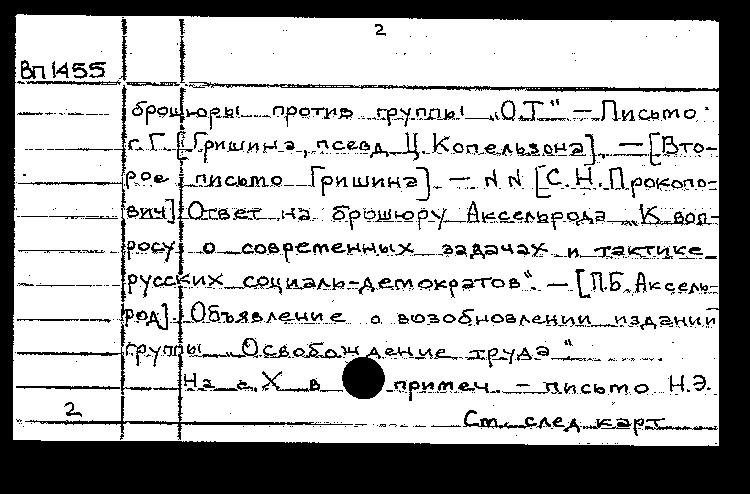 2
ВП 1455
брошюры против группы „О.Т" — Письмо
г. Г. [Гришина, псевд. Ц. Копельзона]. — [Вто-
рое письмо Гришина]. — N N [С. Н. Прокопо-
вич] Ответ на брошюру Аксельрода „К воп-
росу о современных задачах и тактике
русских социаль-демократов". — [П.Б. Аксель-
род]. Объявление о возобновлении изданий
группы „Освобождение труда"
На с. X в примеч. — письмо Н.Э.
2 См. след карт